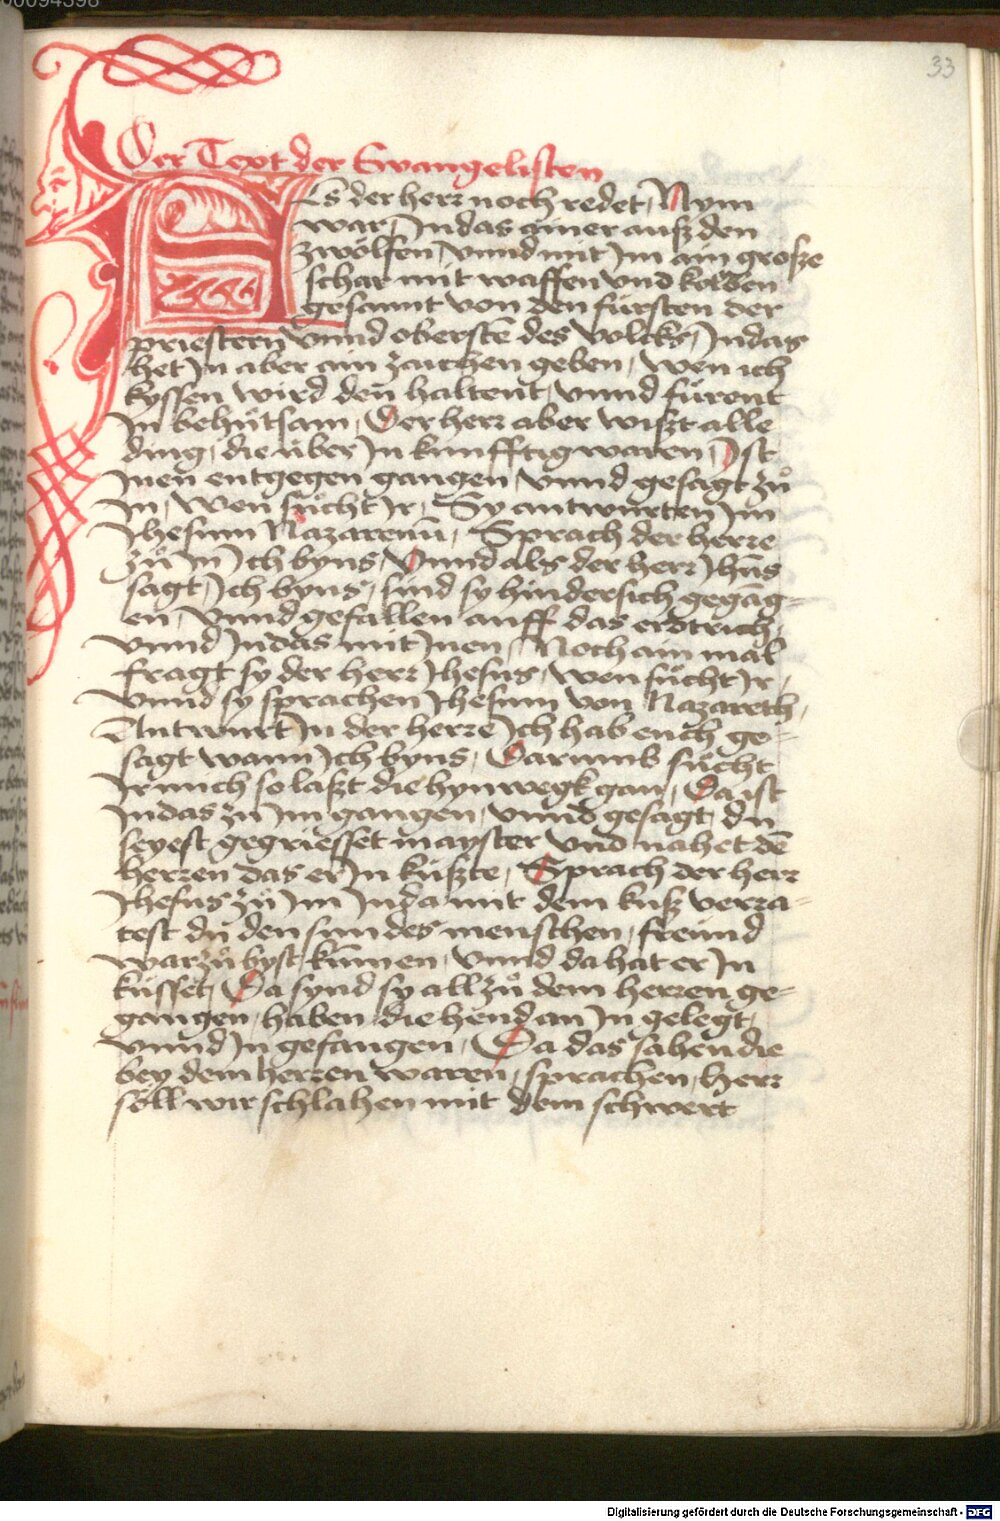 33
Der Text der Ewangelisten
ALs der herr noch redet, Nym
war, Judas ainer ausz den
zwölfen, vnnd mit Im ain grosze
schar mit waffen vnd kolben
gesannt von den fürsten der
priestern vnnd oberstē des volcks, Judas
het In aber ain zaichen geben, wen ich
kyssen wird den haltent, vnnd fürent
In behůtsam, Der herr aber wiszt alle
ding, die über In kunfftig waren, Ist
Inen entgegen gangen, vnnd gesagt zů
In, wen sůcht Ir, Sy antwurten Im
Jhesum Nazarenū, Sprach der herre
zů In Ich byns, Vnnd als der herr Jhūs
sagt, Ich byns, sind sy hindersich gegāg-
en, vnnd gefallen auff das erdtrich,
vnnd Judas mit Inen, Noch ain mal
fragt sy der herr Jhesus, wen sůcht Ir,
vnnd sy sprachen Jhesum von Nazareth,
Antwurt In der herre Ich hab euch ge-
sagt wann Ich byns, Darumb sůcht
Ir mich so laszt die hynwegk gan, Da ist
Judas zu Im gangen, vnnd gesagt, du
seyest gegriesset mayster vnd nahet dē
herren das er In kuszte, Sprach der herr
Jhesus zů Im Juda mit dem kusz verra-
test du den sun des menschen, freund
warzů byst kūmen, vnnd da hat er In
küsset, Da synd sy all zů dem herren ge-
gangen, haben die hend an In gelegt,
vnnd In gefangen, Da das sahen die
bey dem herren waren, sprachen, herr
söll wir schlahen mit dem schwert
Digitalisierung gefördert durch die Deutsche Forschungsgemeinschaft - DFG